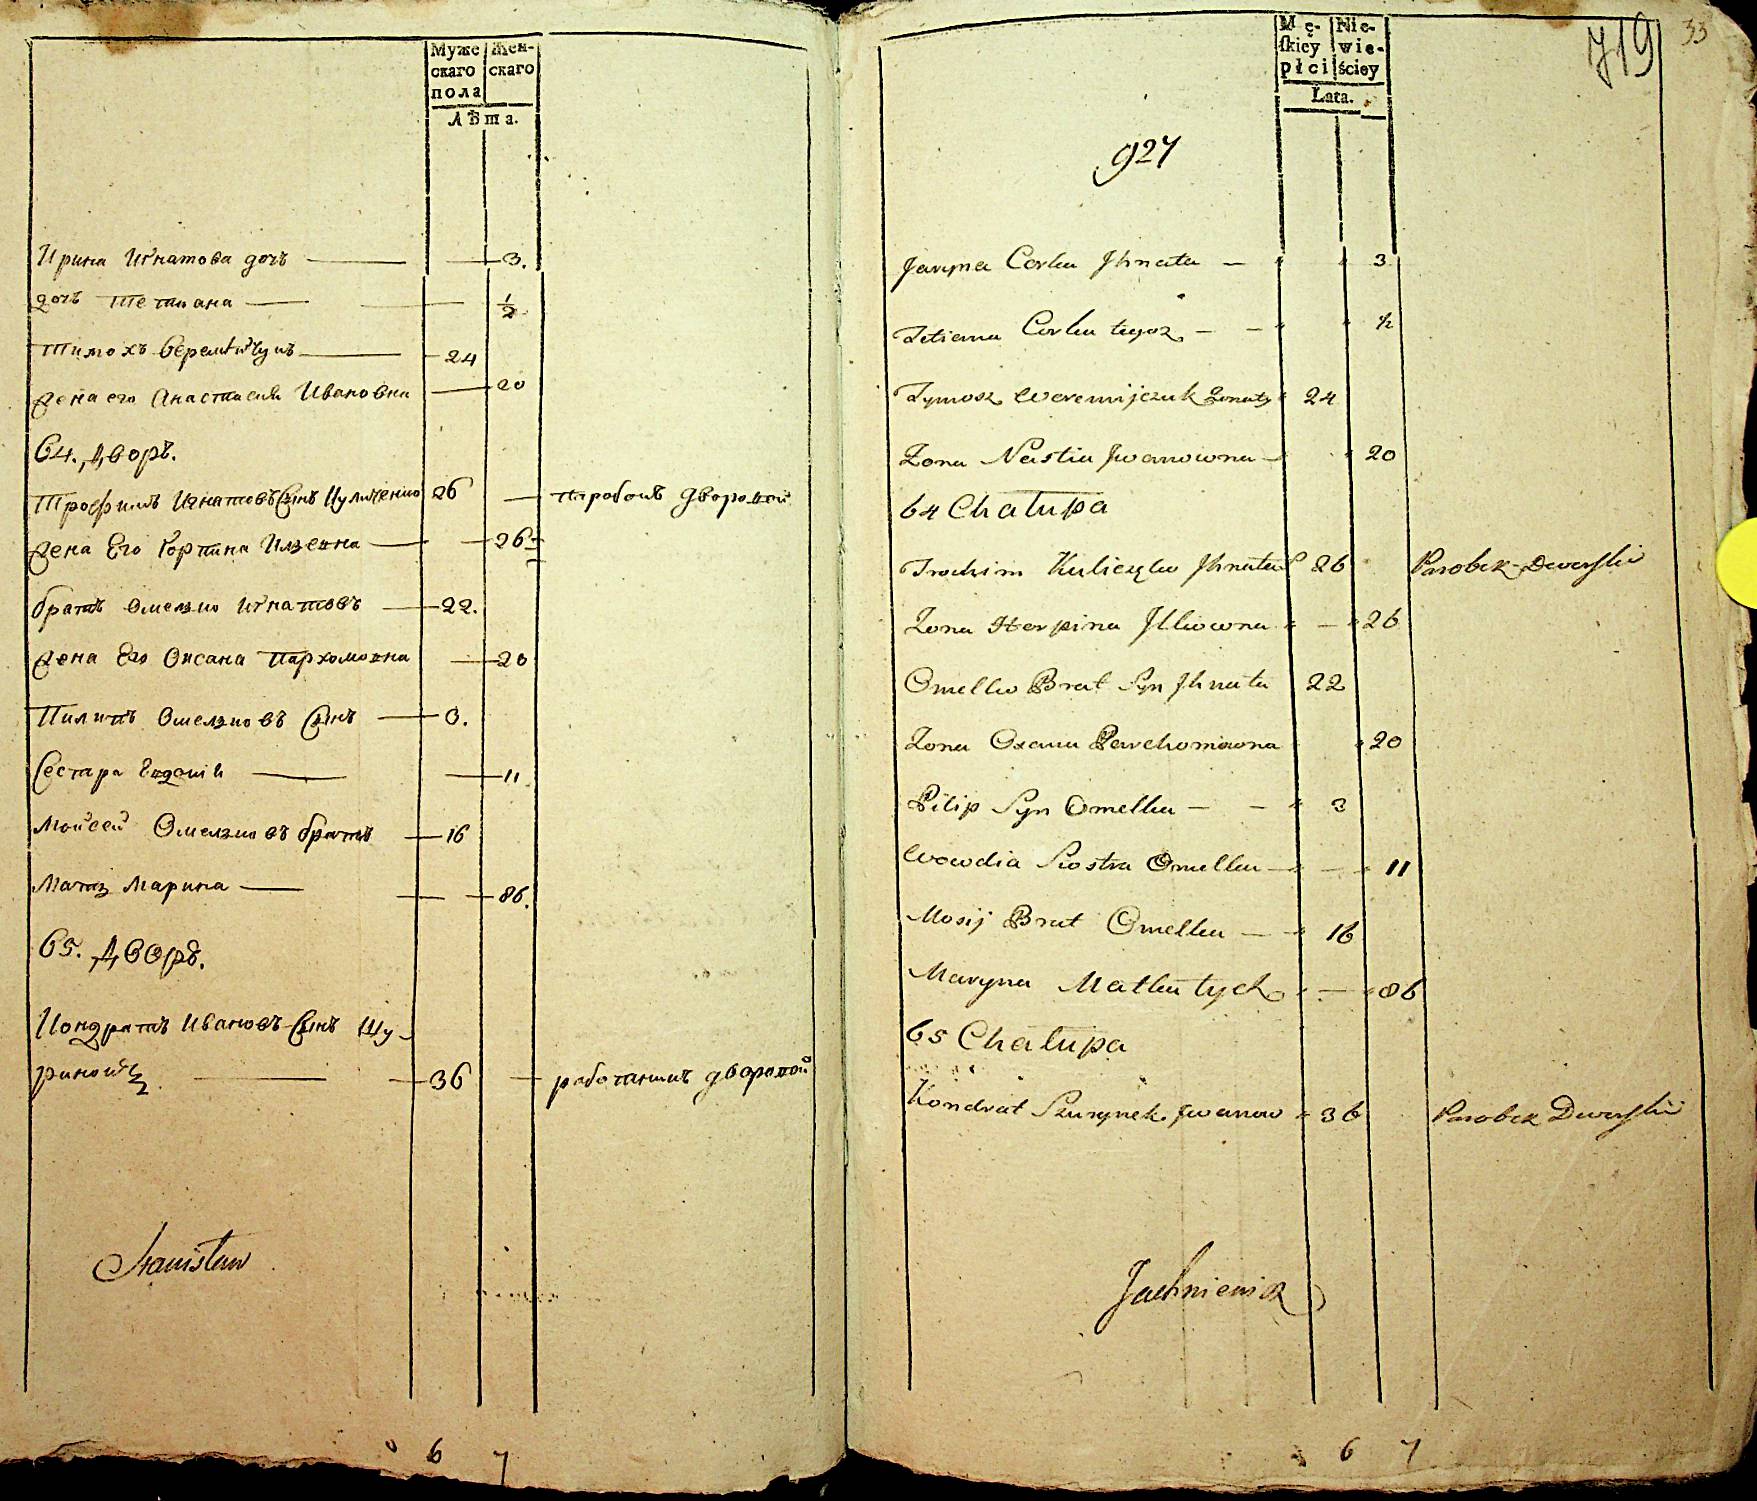 Муже Жен-
скаго скаго
пола
Лѣта.
Ирина Игнатова дочь 3.
дочь Тетиана 1/2
Тимохъ Веремѣйчукъ 24
Жена его Анастасия Ивановна 20
64. Дворъ.
Трофимъ Игнатовъ Сынъ Куличенко 26 паробокъ дворовой
Жена Его Горпина Илзевна 26
братъ Омелько Игнатовъ 22.
Жена Его Оксана Пархомовна 20
Пилипъ Омельковъ Сынъ 3.
Сестара Евдокия 11
Мойсей Омельковъ братъ 16
Мать Марина 86.
65. Дворъ.
Кондратъ Ивановъ Сынъ Шу-
ринокъ 36 работникъ дворовой
Stanisław
6 7
719 33
Mę- Nie-
skiey wie-
płci ściey
Łata.
927
Jaryna Corka Jhnata 3
Tetiana Corka tegoz 1/2
Tymosz Weremijczuk Zonaty 24
Zona Nastia Jwanowna 20
64 Chalupa
Trochim Kuliczęko Jhnatow 26 Parobek Dworski
Zona Horpina Jlliowna 26
Omelko Brat Syn Jhnata 22
Zona Oxana Parchomowna 20
Pilip Syn Omelka 3
Wowdia Siostra Omelka 11
Mosij Brat Omelka 16
Maryna Matka tych 86
65 Chalupa
Kondrat Szurynek Jwanow 36 Parobek Dworski
Jachniewicz
6 7